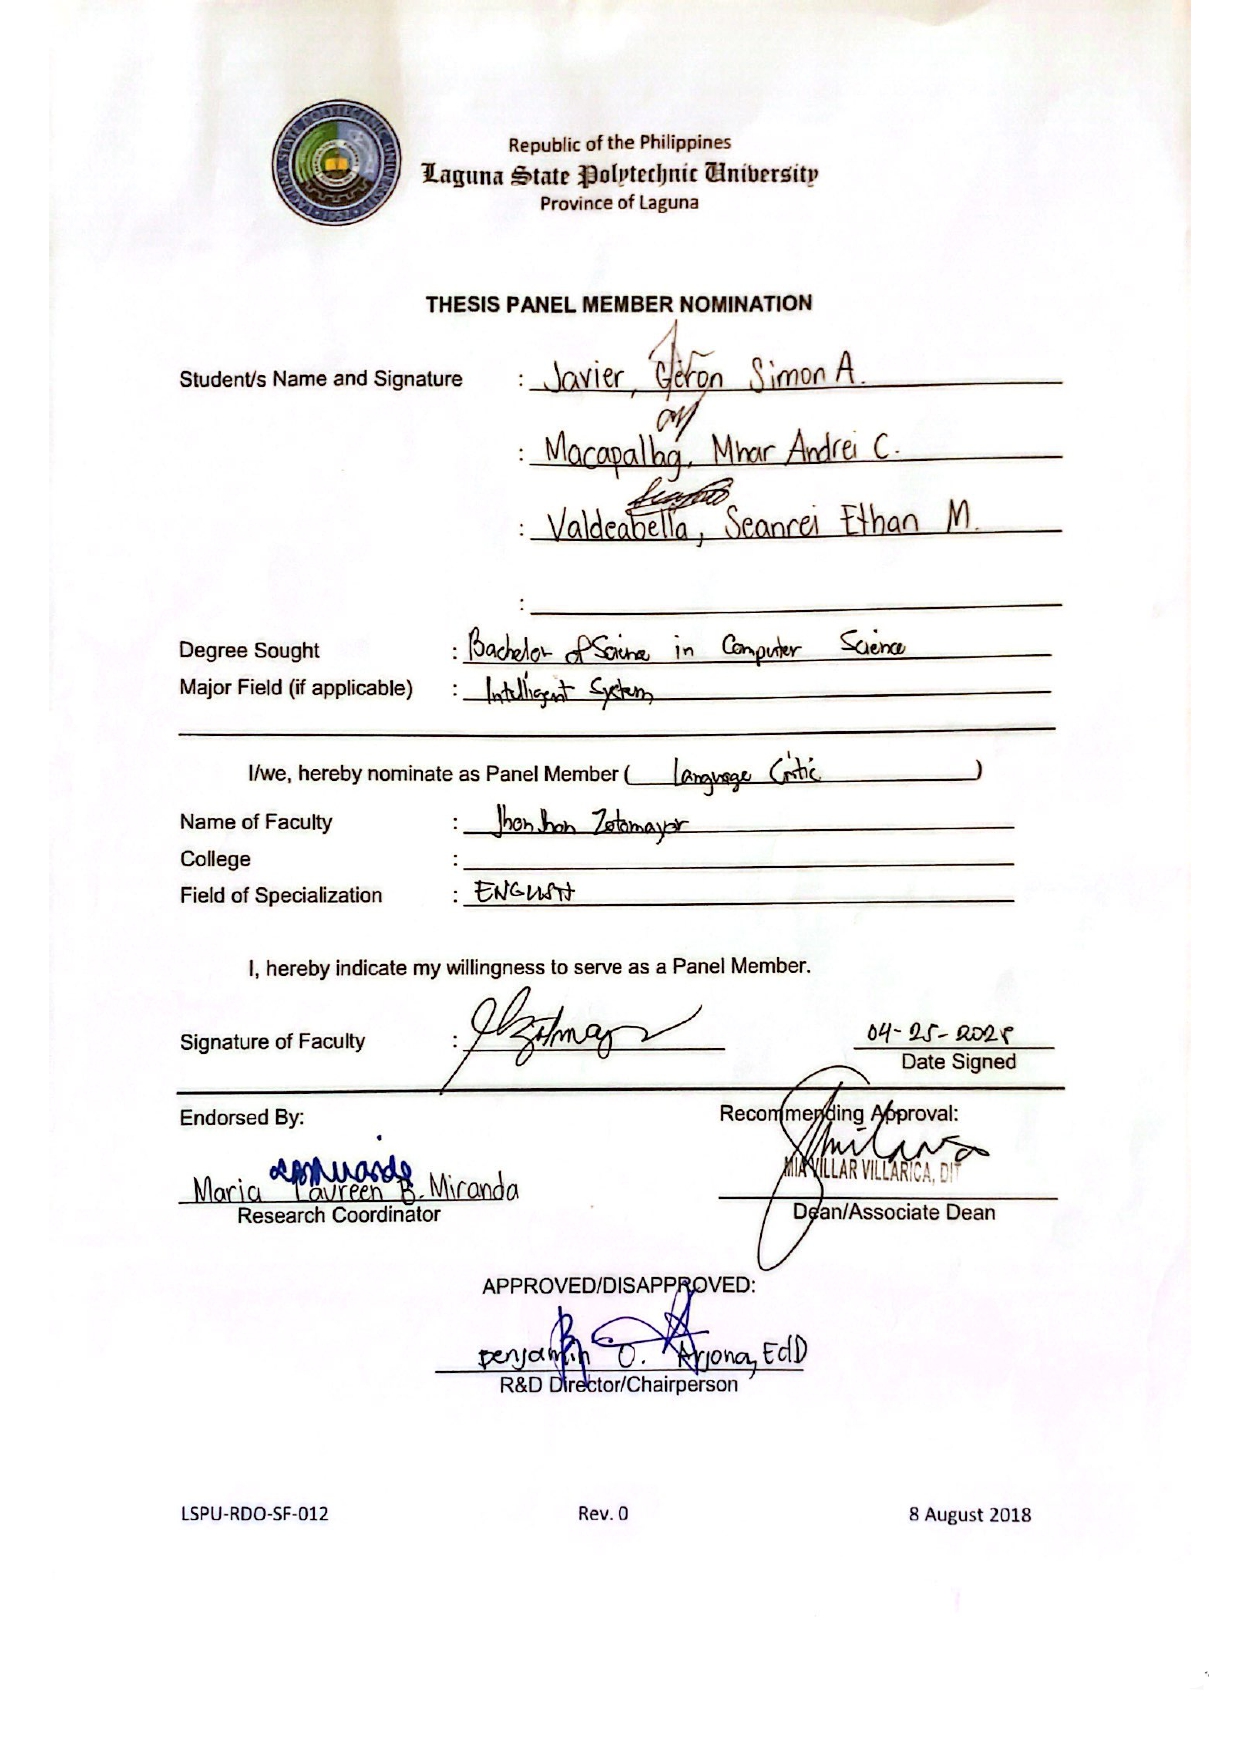 LAGUNA STATE POLYTECHNIC UNIVERSITY
1952
Republic of the Philippines
Laguna State Polytechnic University
Province of Laguna
THESIS PANEL MEMBER NOMINATION
Student/s Name and Signature : Javier, Geron Simon A.
: Macapallag, Mhar Andrei C.
: Valdeabella, Seanrei Ethan M.
:
Degree Sought : Bachelor of Science in Computer Science
Major Field (if applicable) : Intelligent System
I/we, hereby nominate as Panel Member ( Language Critic )
Name of Faculty : Jhon Jhon Zotomayor
College :
Field of Specialization : ENGLISH
I, hereby indicate my willingness to serve as a Panel Member.
Signature of Faculty : 04-25-2025
Date Signed
Endorsed By: Recommending Approval:
Maria Laureen B. Miranda MIA VILLAR VILLARICA, DIT
Research Coordinator Dean/Associate Dean
APPROVED/DISAPPROVED:
Benjamin O. Arjona, EdD
R&D Director/Chairperson
LSPU-RDO-SF-012 Rev. 0 8 August 2018